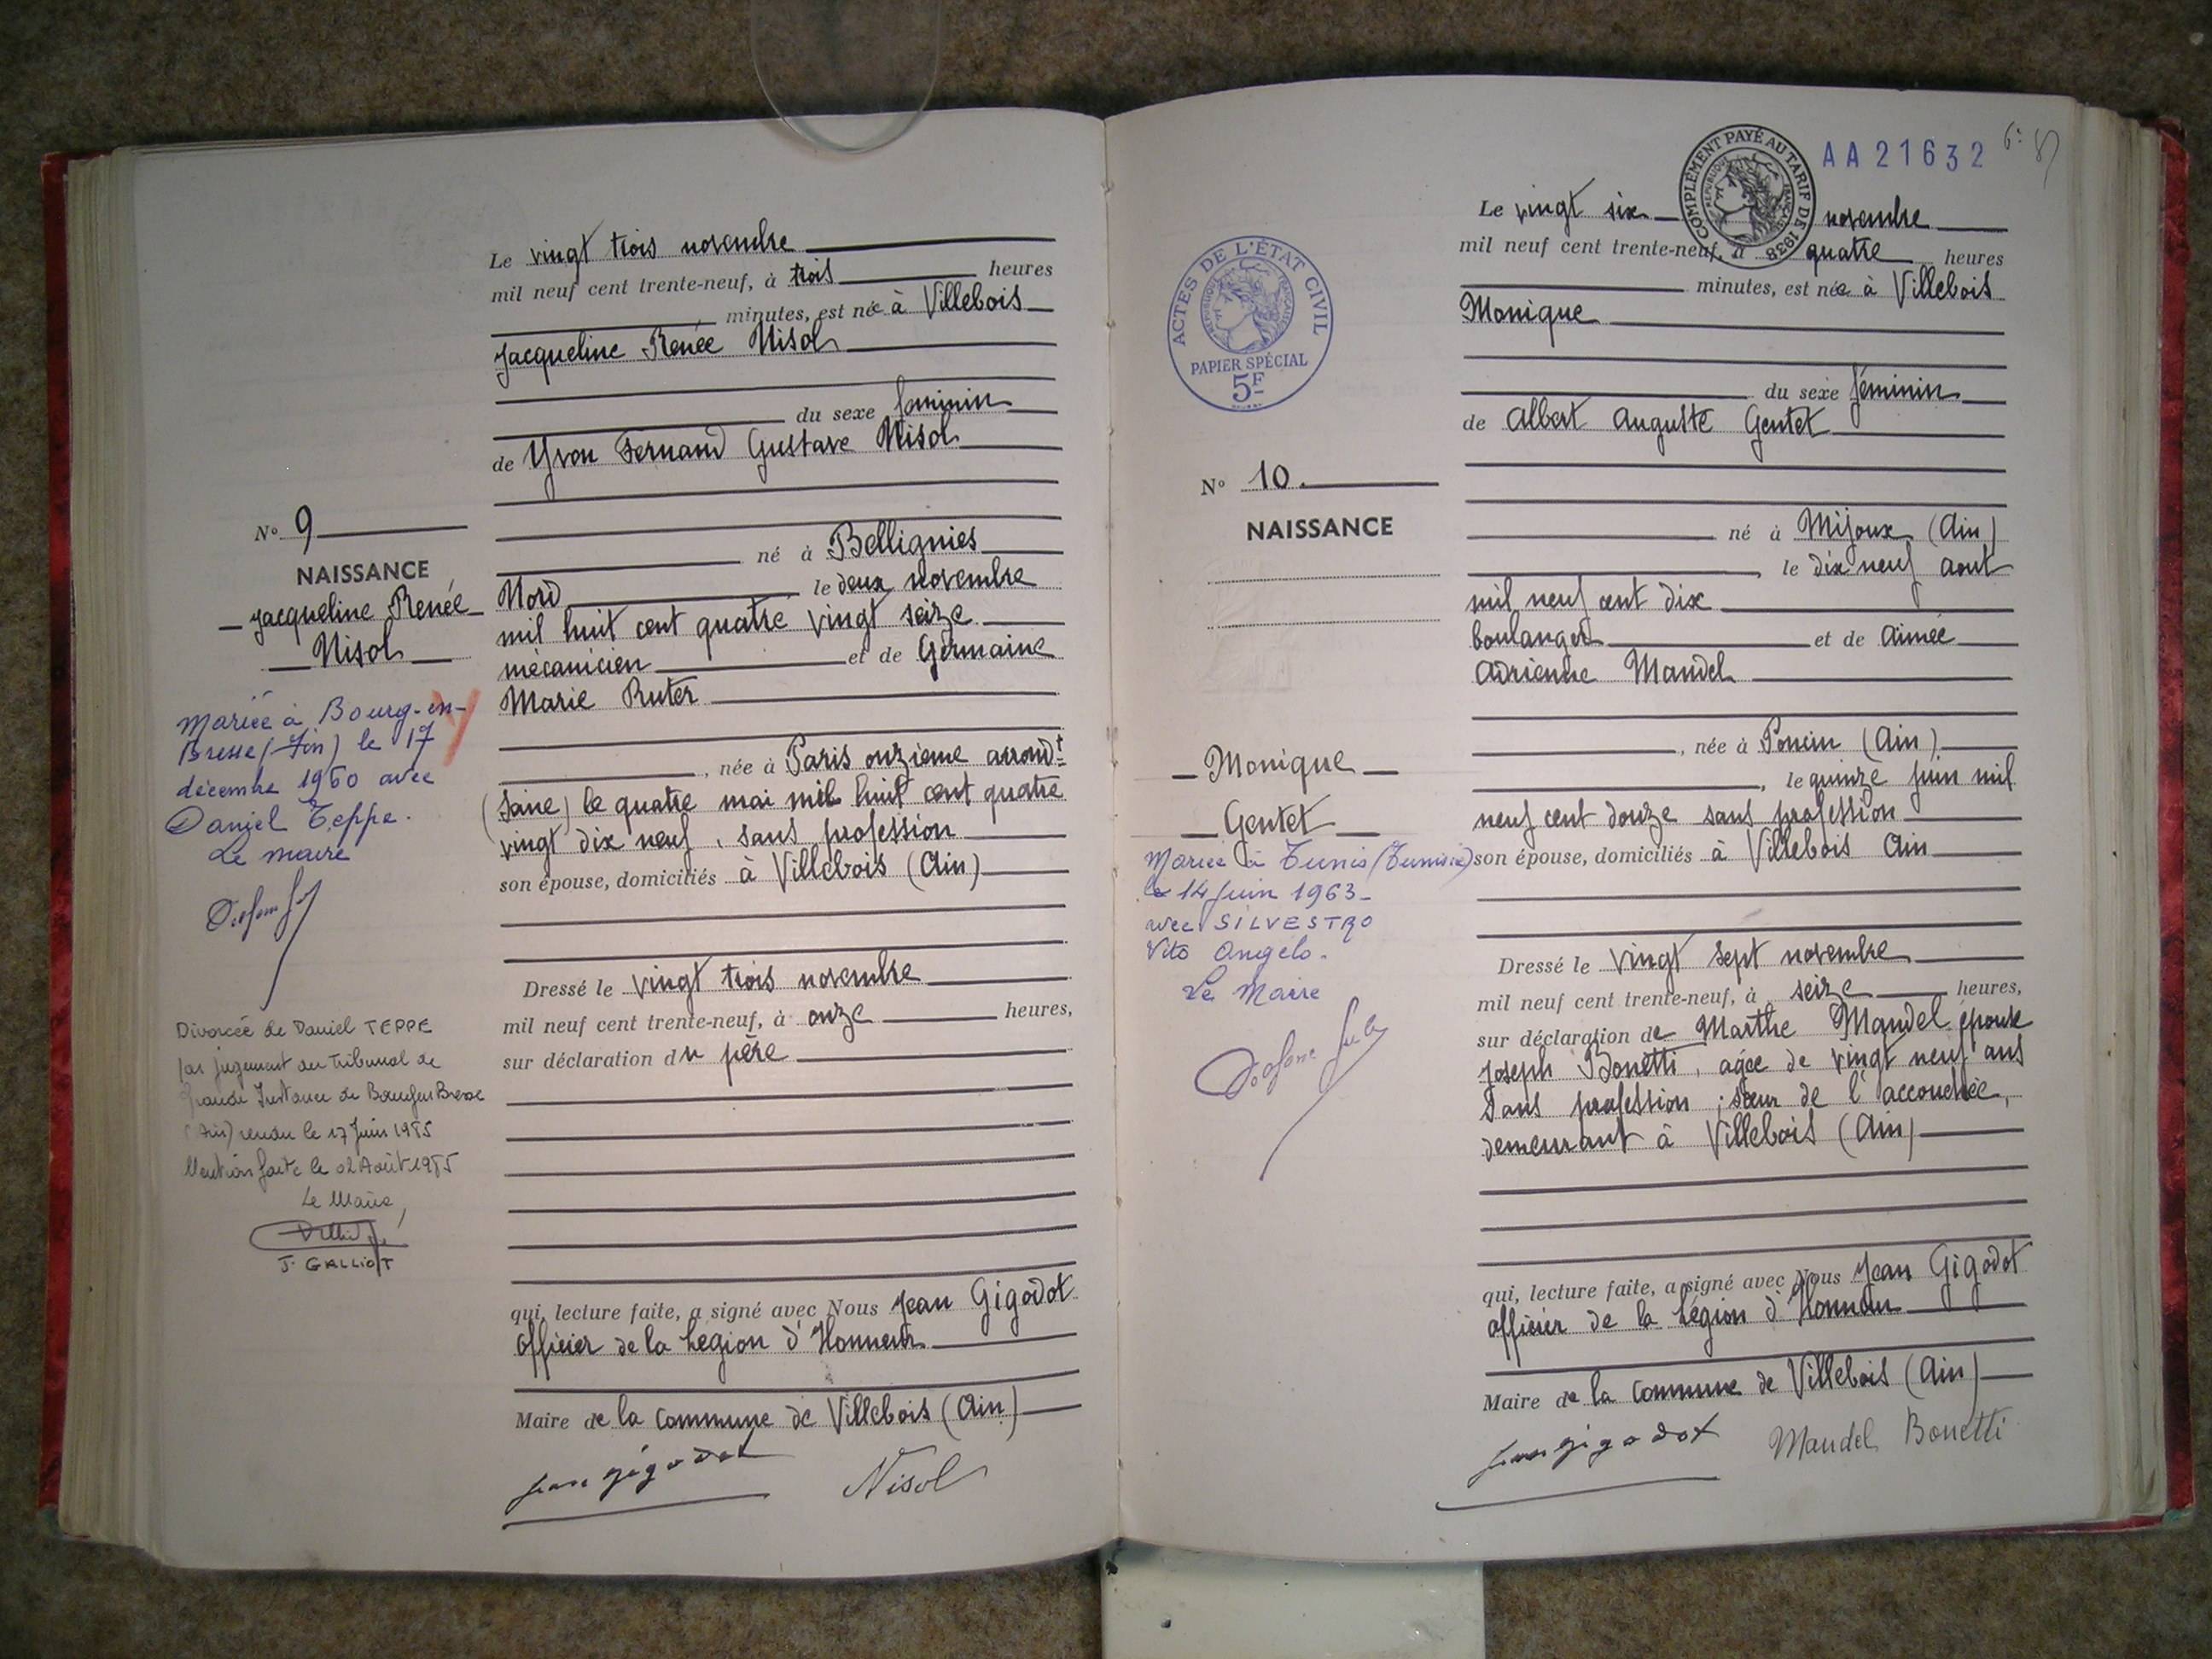 Le vingt trois novembre
mil neuf cent trente-neuf, à trois heures
minutes, est née à Villebois
Jacqueline Renée Nisol
du sexe feminin
de Yvon Fernand Gustave Nisol
né à Bellignies
Nord le deux novembre
mil huit cent quatre vingt seize
mécanicien et de Germaine
Marie Ruter
, née à Paris onzieme arrondt
(Seine) le quatre mai mil huit cent quatre
vingt dix neuf, sans profession
son épouse, domiciliés à Villebois (Ain)
Dressé le vingt trois novembre
mil neuf cent trente-neuf, à onze heures,
sur déclaration du père
qui, lecture faite, a signé avec Nous Jean Gigodot
Officier de la Légion d'Honneur
Maire de la commune de Villebois (Ain)
Jean Gigodot Nisol
No 9
NAISSANCE
Jacqueline Renée
Nisol
Mariée à Bourg-en-
Bresse (Ain) le 17
décembre 1960 avec
Daniel Teppe.
Le maire
Divorcée de Daniel TEPPE
par jugement du Tribunal de
Grande Instance de Bourg en Bresse
(Ain) rendu le 17 Juin 1985
Mention faite le 02 Août 1985
Le Maire,
J. GALLIOT
AA21632
COMPLÉMENT PAYÉ AU TARIF DE 1938
RÉPUBLIQUE FRANÇAISE
Le vingt six novembre
mil neuf cent trente-neuf, à quatre heures
minutes, est née à Villebois
Monique
du sexe féminin
de Albert Auguste Gentet
né à Mijoux (Ain)
, le dix neuf aout
mil neuf cent dix
boulanger et de Aimée
Adrienne Mandel
, née à Poncin (Ain)
, le quinze juin mil
neuf cent douze sans profession
son épouse, domiciliés à Villebois Ain
Dressé le vingt sept novembre
mil neuf cent trente-neuf, à seize heures,
sur déclaration de Marthe Mandel épouse
Joseph Bonetti, agée de vingt neuf ans
sans profession ; sœur de l'accouchée,
demeurant à Villebois (Ain)
qui, lecture faite, a signé avec Nous Jean Gigodot
officier de la Légion d'Honneur
Maire de la commune de Villebois (Ain)
Jean Gigodot Mandel Bonetti
ACTES DE L'ÉTAT CIVIL
RÉPUBLIQUE FRANÇAISE
PAPIER SPÉCIAL
5F
No 10.
NAISSANCE
Monique
Gentet
Mariée à Tunis (Tunisie)
le 14 Juin 1963-
avec SILVESTRO
Vito Angelo.
Le Maire